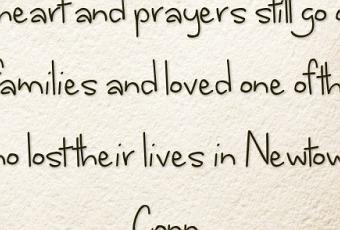 heart and prayers still go o
families and loved one of th
ho lost their lives in Newtow
Conn